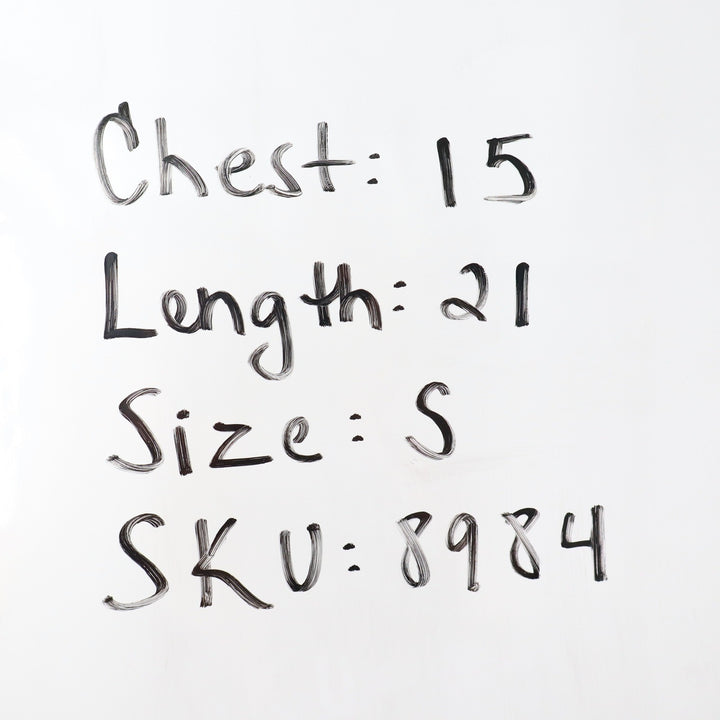 Chest: 15
Length: 21
Size: S
SKU: 8984